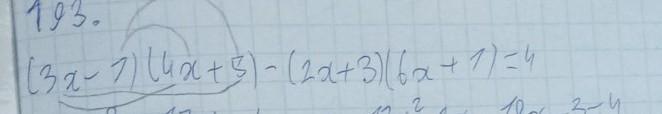 193.
(3x-1)(4x+5)-(2x+3)(6x+1)=4